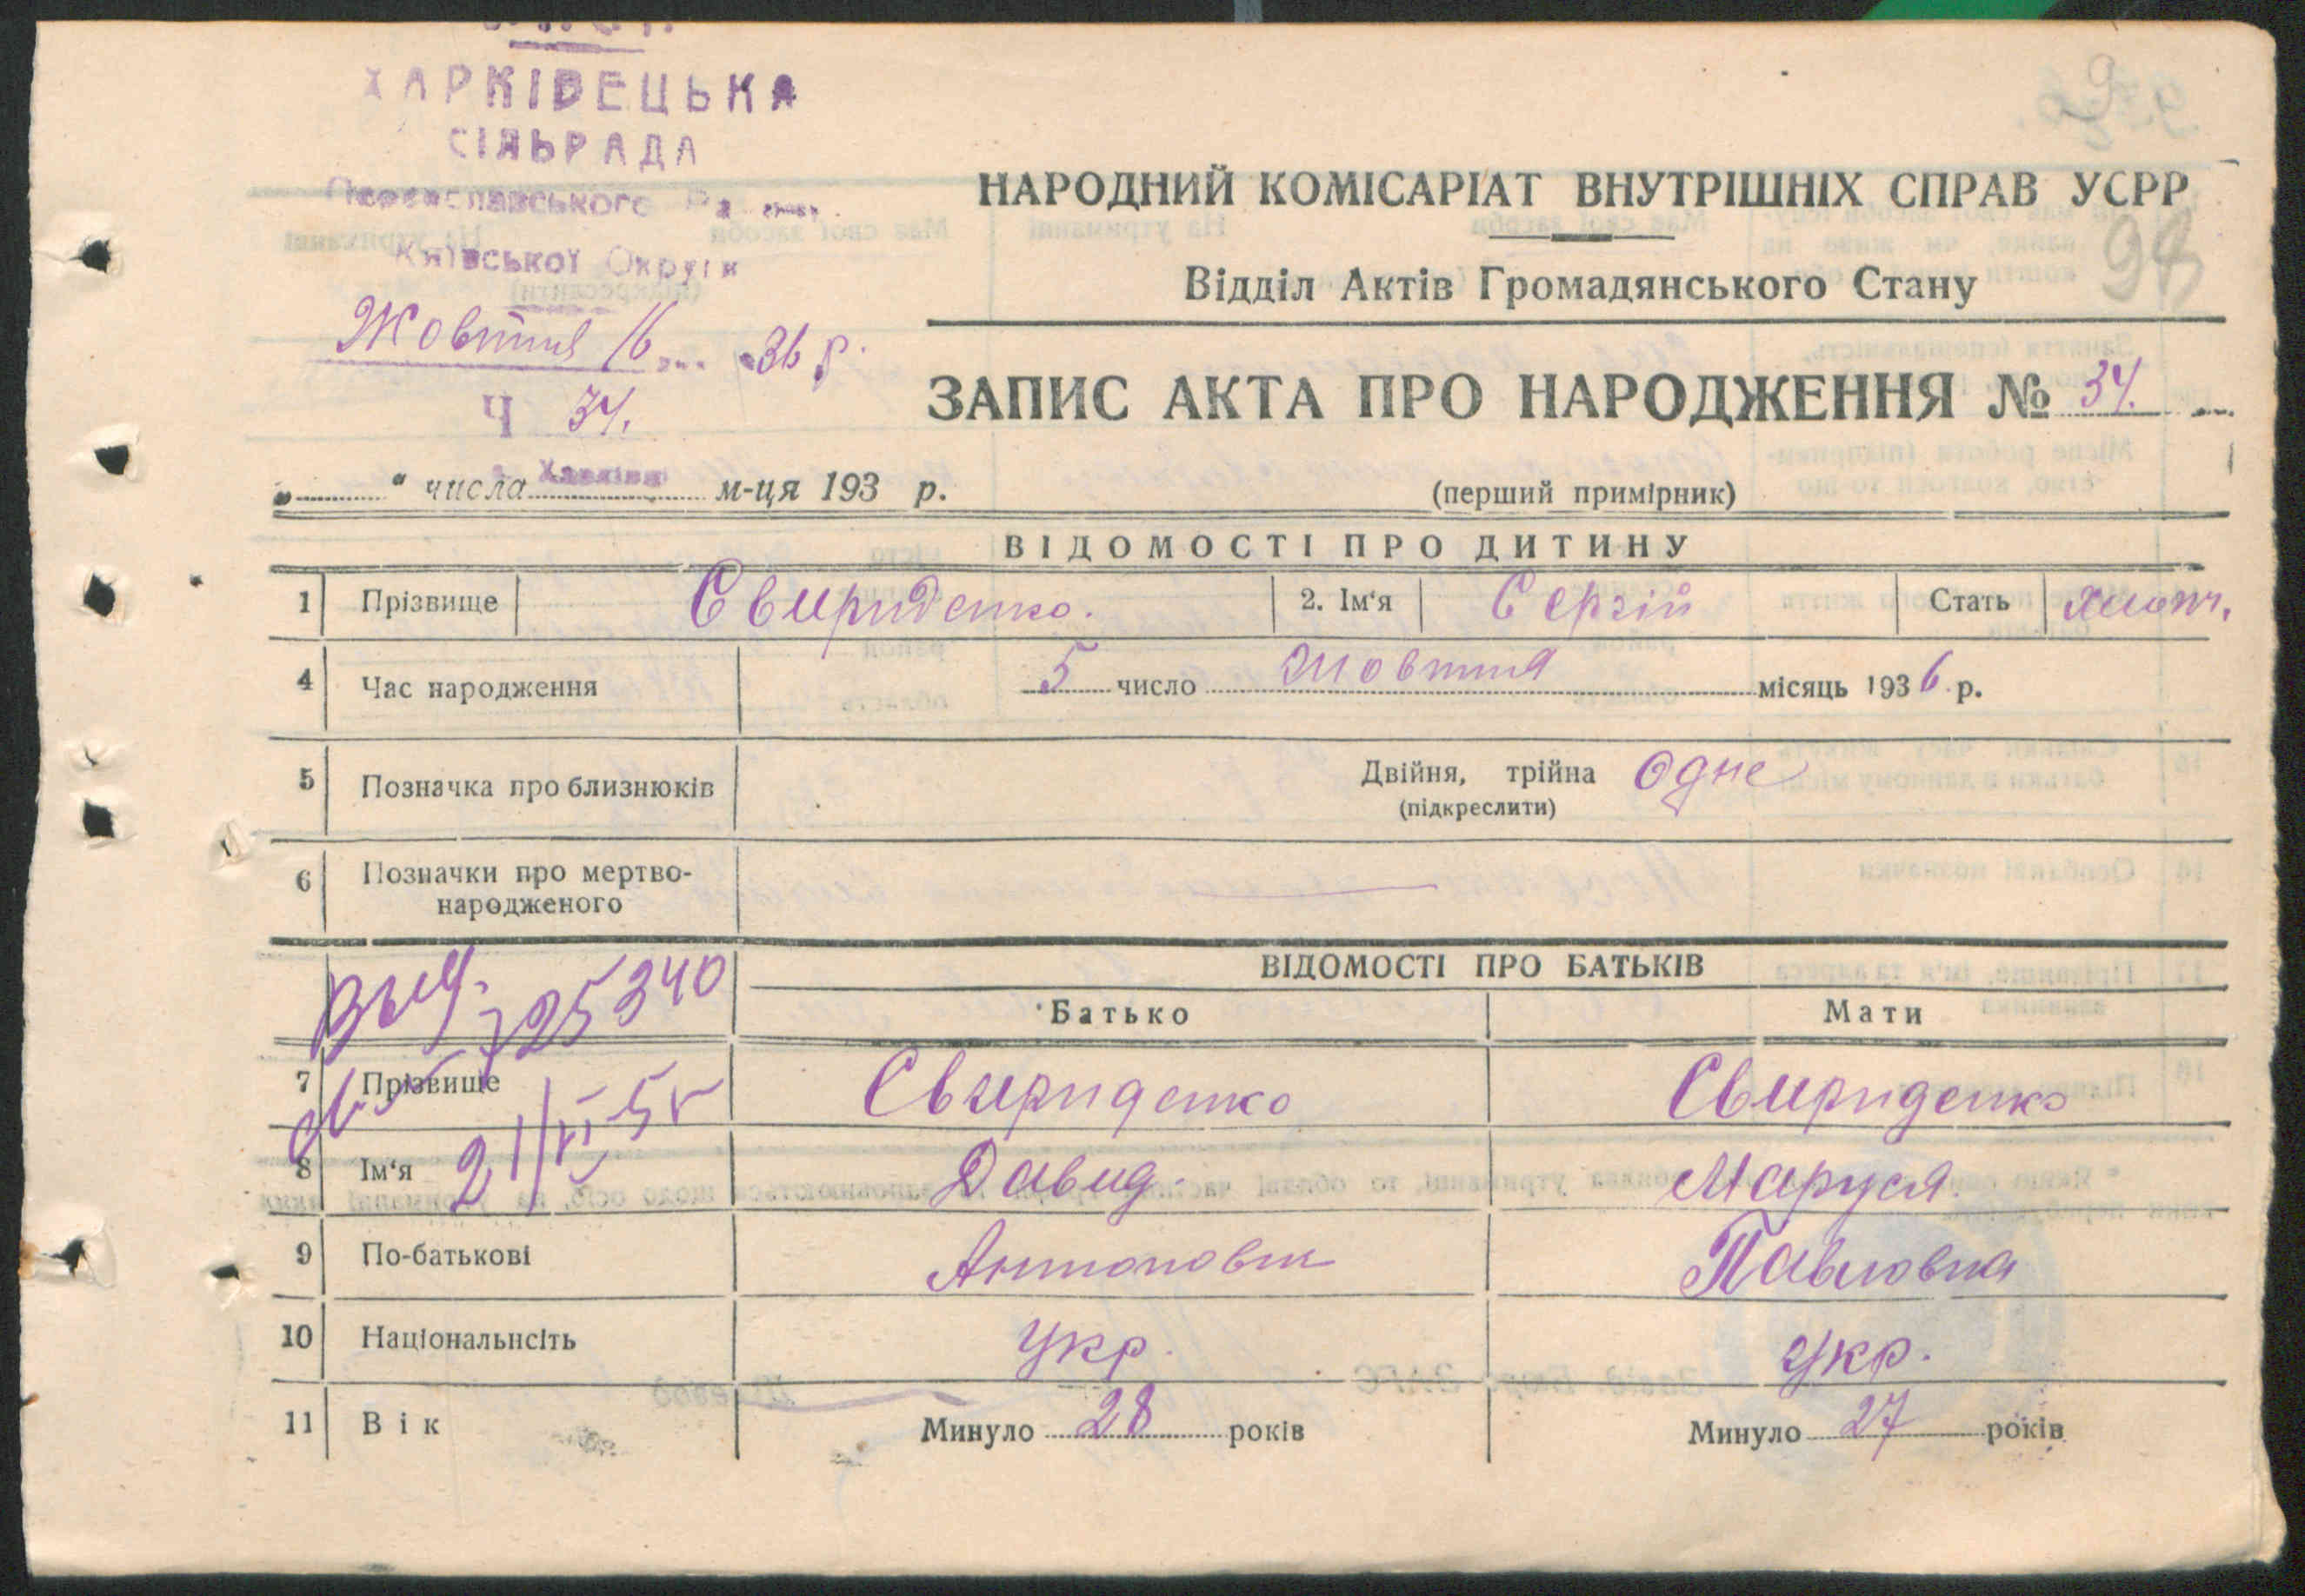 ХАРКІВЕЦЬКА
СІЛЬРАДА
Переяславського
Київської Округи
Жовтня 16 36 р.
Ч 34.
98
НАРОДНИЙ КОМІСАРІАТ ВНУТРІШНІХ СПРАВ УСРР
Відділ Актів Громадянського Стану
ЗАПИС АКТА ПРО НАРОДЖЕННЯ № 34.
„ “ числа м-ця 193 р.
(перший примірник)
ВІДОМОСТІ ПРО ДИТИНУ
1 Прізвище Свириденко. 2. Ім'я Сергій Стать хлопч.
4 Час народження 5 число жовтня місяць 1936 р.
5 Позначка про близнюків Двійня, трійна одне
(підкреслити)
6 Позначки про мертво-
народженого
ВІДОМОСТІ ПРО БАТЬКІВ
Батько Мати
Выд. 725340
7 Прізвище Свириденко Свириденко
8 Ім'я Давид. Маруся.
9 По-батькові Антонович Павловна
10 Національнсіть Укр. Укр.
11 Вік Минуло 28 років Минуло 27 років